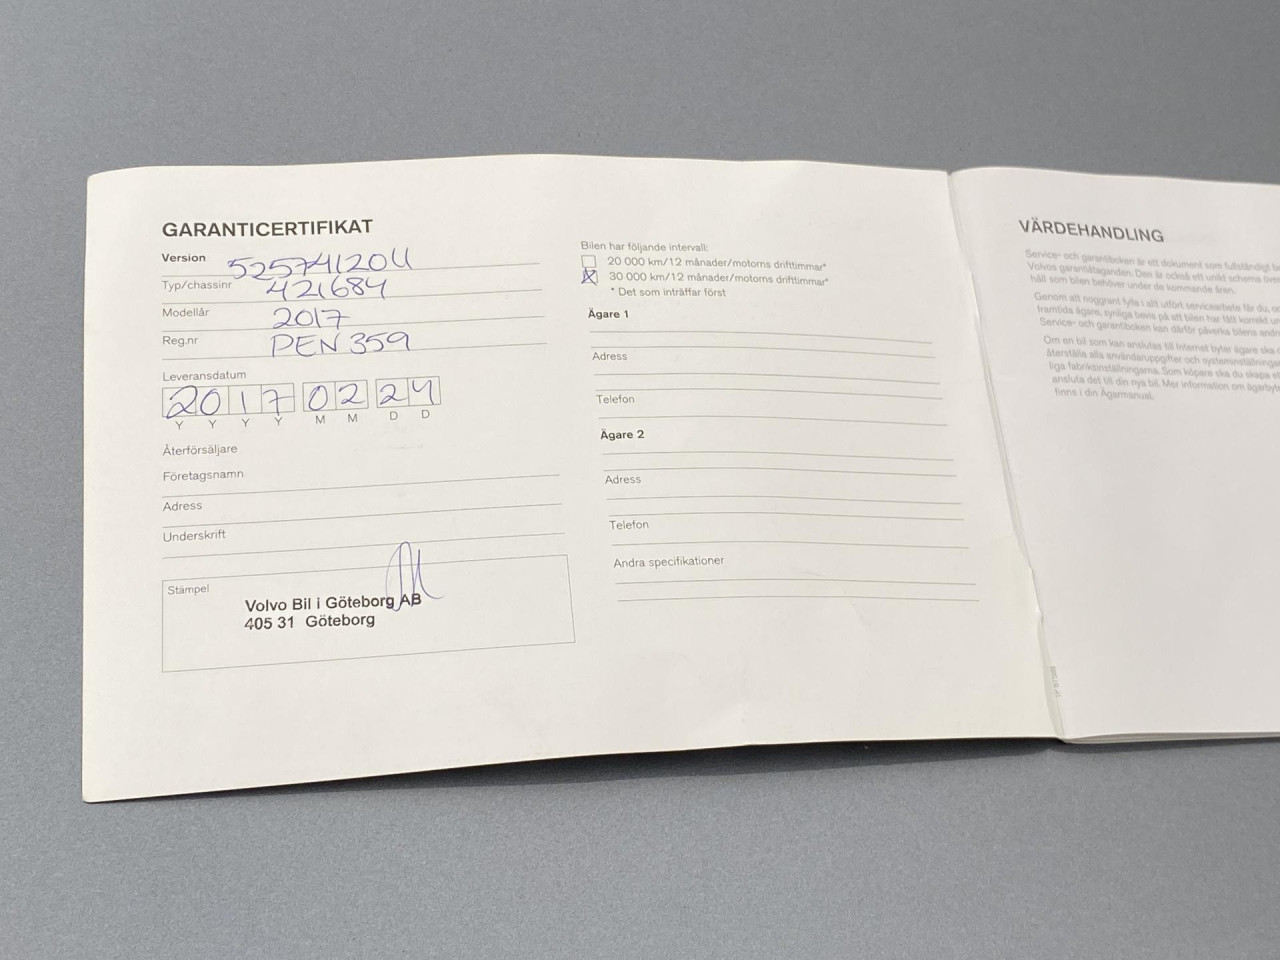 GARANTICERTIFIKAT
Version 52574120U
Typ/chassinr 421684
Modellår 2017
Reg.nr PEN 359
Leveransdatum
2017 02 24
Y Y Y Y M M D D
Återförsäljare
Företagsnamn
Adress
Underskrift
Stämpel
Volvo Bil i Göteborg AB
405 31 Göteborg
Bilen har följande intervall:
20 000 km/12 månader/motorns drifttimmar*
30 000 km/12 månader/motorns drifttimmar*
* Det som inträffar först
Ägare 1
Adress
Telefon
Ägare 2
Adress
Telefon
Andra specifikationer
VÄRDEHANDLING
Service- och garantiboken är ett dokument som fullständigt
Volvos garantiåtaganden. Den är också ett unikt schema
håll som bilen behöver under de kommande åren.
Genom att noggrant fylla i allt utfört servicearbete får du,
framtida ägare, synliga bevis på att bilen har fått korrekt
Service- och garantiboken kan därför påverka bilens
Om en bil som kan anslutas till Internet byter ägare ska
återställa alla användaruppgifter och systeminställningar
liga fabriksinställningarna. Som köpare ska du skapa
ansluta det till din nya bil. Mer information om
finns i din Ägarmanual.